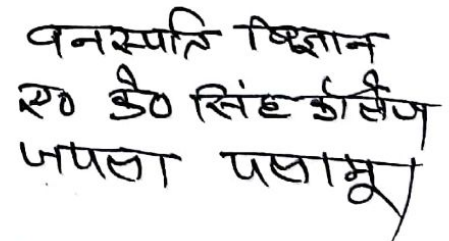 वनस्पति विज्ञान
ए० के० सिंह कॉलेज
जपला पलामू